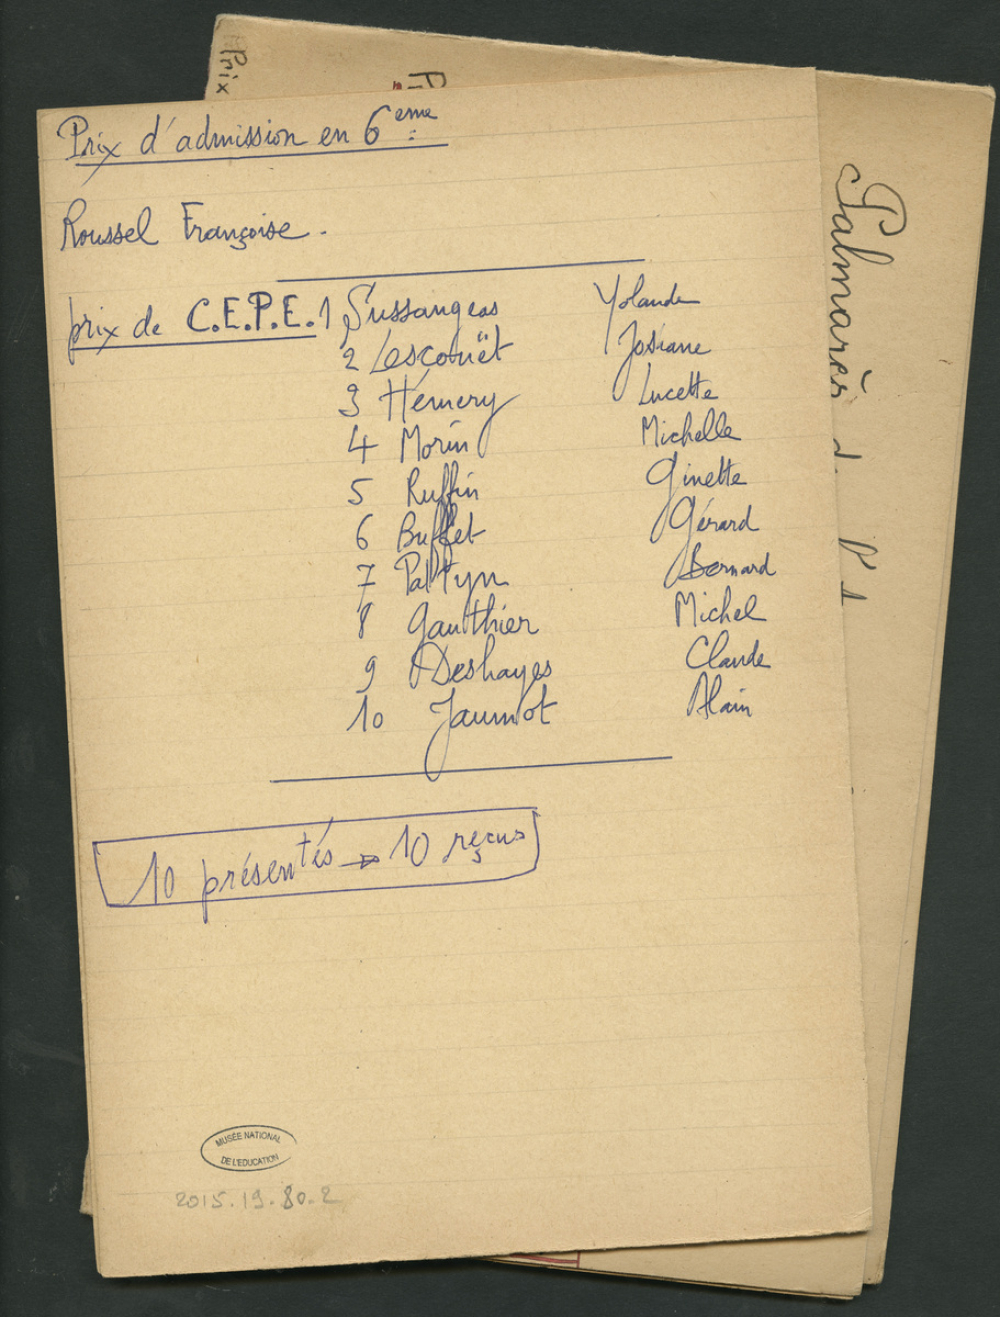 Prix d'admission en 6ème
Roussel Françoise.
prix de C.E.P.E. 1 Sussangeas Yolande
2 Lescouët Josiane
3 Hémery Lucette
4 Morin Michelle
5 Ruffin Ginette
6 Buffet Gérard
7 Paltyn Bernard
8 Gauthier Michel
9 Deshayes Claude
10 Jaumot Alain
10 présentés → 10 reçus
MUSÉE NATIONAL
DE L'EDUCATION
2015.19.80.2
Prix
Palmarès